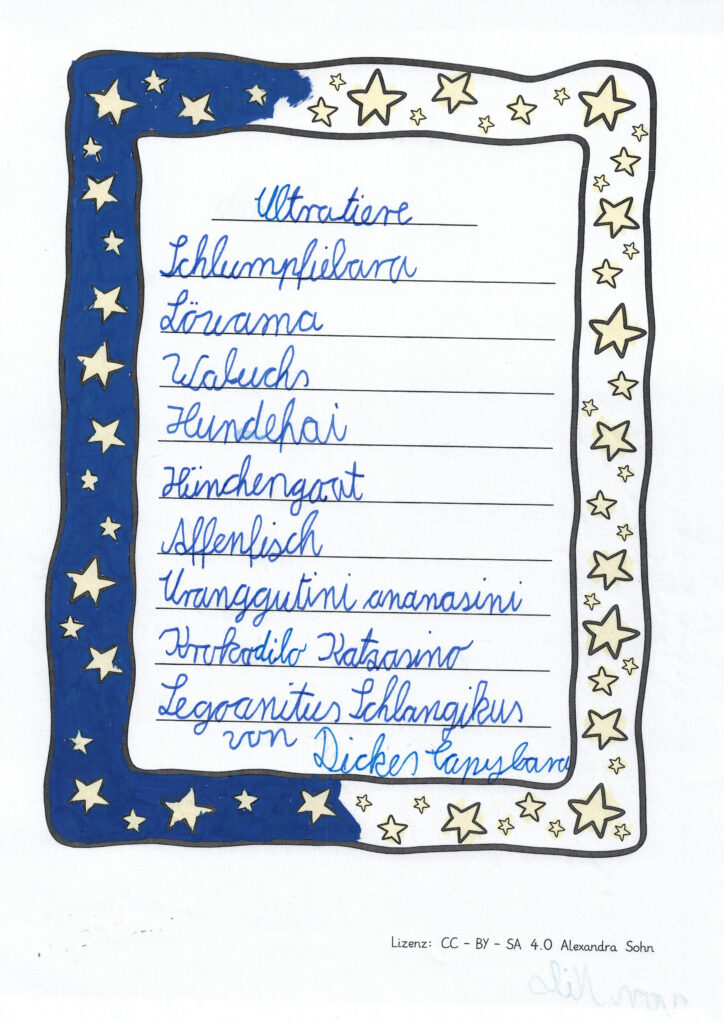 Ultratiere
Schlumpfiebara
Löwama
Waluchs
Hundehai
Hünchengoat
Affenfisch
Uranggutini ananasini
Krokodilo Katsasino
Legoanitus Schlangikus
von Dickes Capybara
Lizenz: CC - BY - SA 4.0 Alexandra Sohn